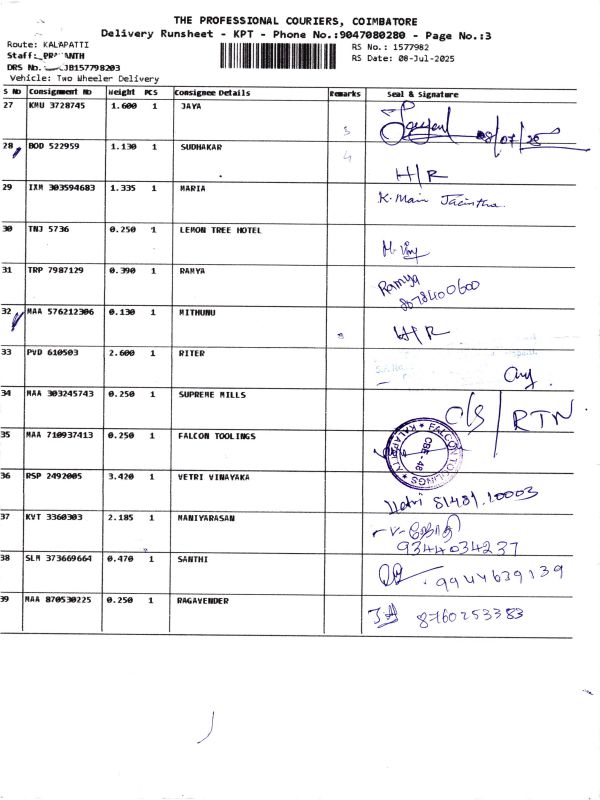 THE PROFESSIONAL COURIERS, COIMBATORE
Delivery Runsheet - KPT - Phone No.:9047080280 - Page No.:3
Route: KALAPATTI
RS No.: 1577982
Staff: PRA ANTH
RS Date: 08-Jul-2025
DRS No. JB157798203
Vehicle: Two Wheeler Delivery
S No Consignment No Weight PCS Consignee Details Remarks Seal & Signature
27 KMU 3728745 1.600 1 JAYA 08/07/25
28 BOD 522959 1.130 1 SUDHAKAR H/R
29 IXM 303594683 1.335 1 MARIA K. Mair Jacintha.
30 TNJ 5736 0.250 1 LEMON TREE HOTEL
31 TRP 7987129 0.390 1 RAMYA Ramya
8678400600
32 MAA 576212306 0.130 1 MITHUNU H/R
33 PVD 610503 2.600 1 RITER
34 MAA 303245743 0.250 1 SUPREME MILLS C/S / RTN
35 MAA 710937413 0.250 1 FALCON TOOLINGS ★ FALCON TOOLINGS ★ KALAPATTI CBE - 48
36 RSP 2492005 3.420 1 VETRI VINAYAKA Vetri 81481.10003
37 KVT 3360303 2.185 1 MANIYARASAN
9344034237
38 SLM 373669664 0.470 1 SANTHI 9944639139
39 MAA 870530225 0.250 1 RAGAVENDER 8760253383